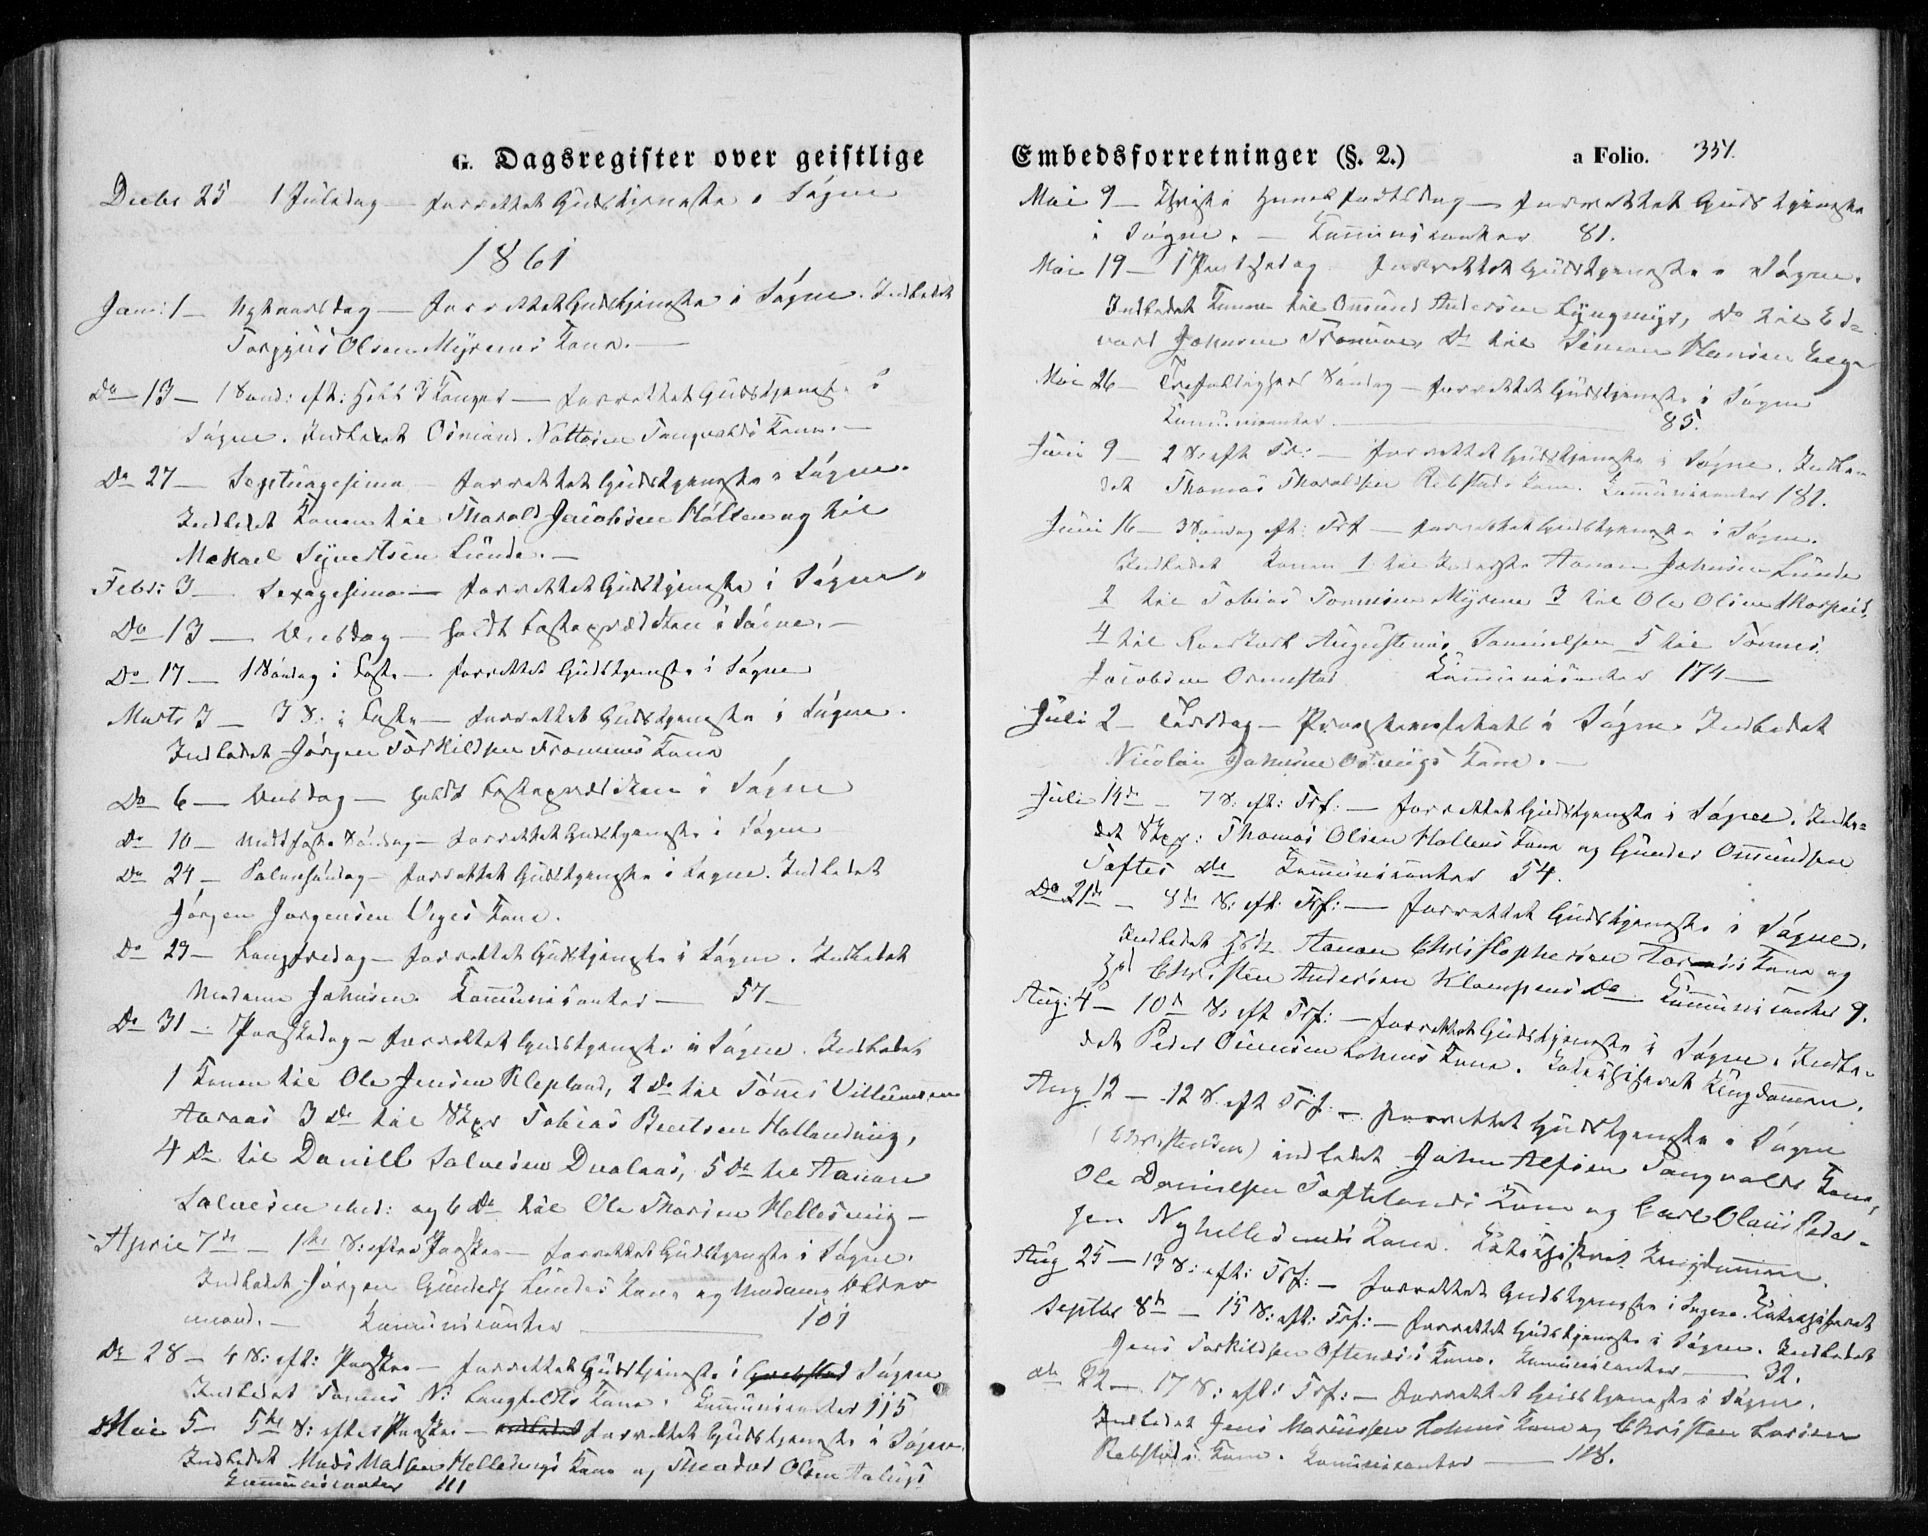 G. Dagsregister over geistlige
Decbr 25 1 Juledag — forrettet Gudstjeneste i Søgne
1861
Janr: 1 — Nytaarsdag — forrettet Gudstjeneste i Søgne. Indledet
Torgjus Olsen Myrens Kone. —
Do 13 — 1 Sønd: eft: Hell 3 Konger — forrettet Gudstjeneste i
Søgne. Indledet Osmund Tangvalds Kone. —
Do 27 — Septuagesima — forrettet Gudstjeneste i Søgne.
Indledet Konen til Tharald Jacobsen Holten og til
Mikael Syvertsen Lunde. —
Febr: 3 — Sexagesima — forrettet Gudstjeneste i Søgne.
Do 13 — Onsdag — holdt Fasteprædiken i Søgne. —
Do 17 — 1 Søndag i Faste — forrettet Gudstjeneste i Søgne
Marts 3 — 3 S. i Faste — forrettet Gudstjeneste i Søgne.
Indledet Jørgen Torkildsen Tronnes Kone
Do 6 — Onsdag — holdt Fasteprædiken i Søgne
Do 10 — Midfaste Søndag — forrettet Gudstjeneste i Søgne
Do 24 — Palmesøndag — forrettet Gudstjeneste i Søgne. Indledet
Jørgen Jørgensen Veges Kone.
Do 29 — Langfredag — forrettet Gudstjeneste i Søgne. Indledet
Madame Johnsen. Kommunikanter — 57 —
Do 31 — Paaskedag — forrettet Gudstjeneste i Søgne. Indledet
1 Konen til Ole Jensen Klepland, 2 Do til Tønnes Villumsen
Aaraas 3 Do til Skpr Tobias Bentsen Hallandvig,
4 Do til Daniel Salvesen Dualaas, 5 Do til Aanon
Salvesen ibid: og 6 Do til Ole Thorsen Hellesvig —
April 7de — 1ste S: efter Paaske — forrettet Gudstjeneste i Søgne.
Indledet Jørgen Gunders Lundes Kone og Madame
Kommunikanter — 101
Do 28 — 4 S: eft: Paaske — forrettet Gudstjeneste i Greibstad Søgne
Indledet Tønnes N: Langfeldts Kone. Kommunikanter 115
Mai 5 — 5te S: efter Paaske — indledet forrettet Gudstjeneste i Søgne.
Indledet Mads Madsen Hellesvigs Kone og Theodor Olsen
Kommunikanter 111
Embedsforretninger (§. 2.) a Folio. 351.
Mai 9 — Christi Himmelfartsdag — forrettet Gudstjeneste
i Søgne. — Kommunikanter 81.
Mai 19 — 1 Pintsedag forrettet Gudstjeneste i Søgne.
Indledet Konen til Omund Andersen Lyngmyr, Do til Ed-
vard Johnsen Do til Simon Hansen
Mai 26 — Trefoldigheds Søndag — forrettet Gudstjeneste i Søgne
Kommunikanter — 85.
Juni 9 — 2 S: eft Tr: — forrettet Gudstjeneste i Søgne. Indle-
det Thomas Tharaldsen Rebstads Kone. Kommunikanter 181.
Juni 16 — 3 Søndag eft: Trf — forrettet Gudstjeneste i Søgne.
Indledet Konen 1 til Inderste Aanon Johnsen Lunde
2 til Tobias Tommsen Myrene 3 til Ole Olsen
4 til Augustinus Samuelsen 5 til Tønnes
Jacobsen Ormestad Kommunikanter 174 —
Juli 2 — Tirsdag — i Søgne. Indledet
Nicolai Johnsen Kone. —
Juli 14de — 7 S: eft: Trf: — forrettet Gudstjeneste i Søgne. Indle-
det Skpr: Thomas Olsen Hollens Kone og Gunder Omundsen
Toftes Do Kommunikanter 54.
Do 21de — 8de S: eft: Trf: — forrettet Gudstjeneste i Søgne.
Indledet Aanon Christophersen Kone og
Christen Andersen Klompens Do Kommunikanter 9.
Aug: 4 — 10de S: eft Trf: — forrettet Gudstjeneste i Søgne. Indle-
det Peder Kone. Katechiseret Ungdommen.
Aug 12 — 12 S. eft Trf: — forrettet Gudstjeneste i Søgne
(Christensen) indledet John Alfsen Tangvalds Kone,
Ole Danielsen Toftelands Kone og Carl Olaus Peder-
sen Nyhellesunds Kone. Katechiseret Ungdommen.
Aug 25 — 13 S: eft: Trf: — forrettet Gudstjeneste i Søgne. Katechiseret
Septbr 8de — 15 S: eft: Trf: — forrettet Gudstjeneste i Søgne. Indledet
Jens Torkildsen Oftenæs's Kone. Kommunikanter — 32.
do 22 — 17 S: eft: Trf: — forrettet Gudstjeneste i Søgne.
Indledet Jens Mariussen Holmes Kone og Christen Larsen
Rebstads Kone. Kommunikanter — 118.